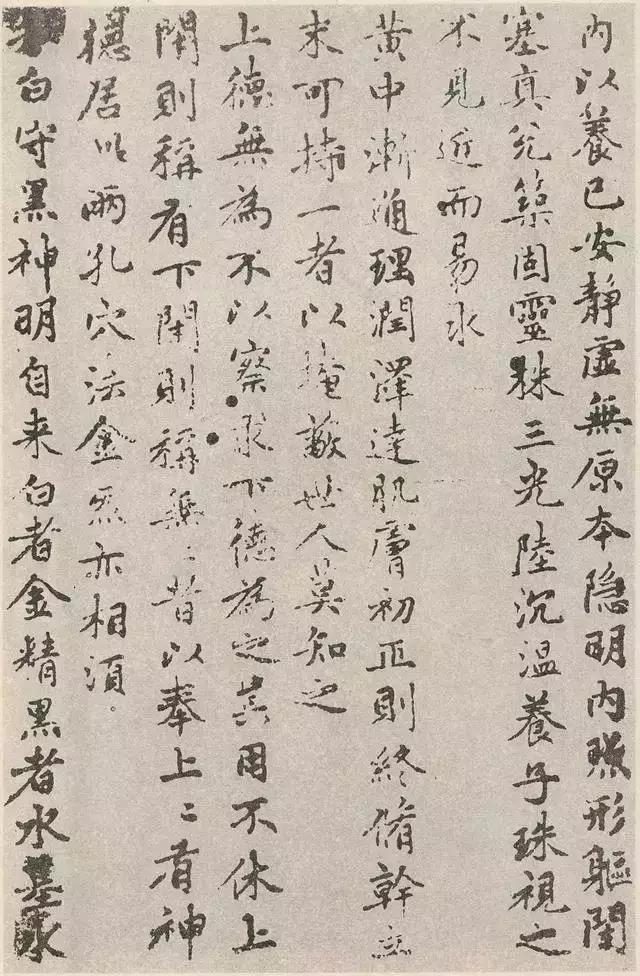 內以養己安靜虛無原本隱明內照形軀閉
塞真兌築固靈株三光陸沉温養子珠視之
不見近而易求
黃中漸通理潤澤達肌膚初正則終脩幹立
末可持一者以掩蔽世人莫知之
上德無為不以察求下德為之其用不休上
閉則稱有下閉則稱無〻者以奉上〻有神
德居此兩孔穴法金炁亦相須
白守黑神明自来白者金精黑者水基水